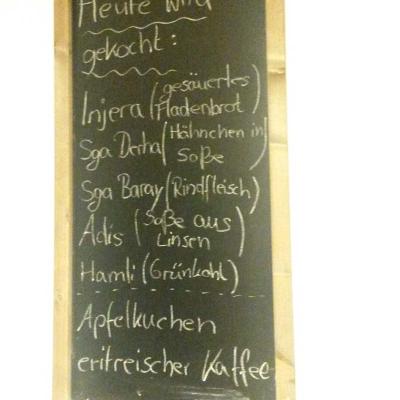 Heute wird
gekocht:
Injera (gesäuertes
Fladenbrot)
Sga Derha (Hähnchen in
Soße)
Sga Baray (Rindfleisch)
Adis (Soße aus
Linsen)
Hamli (Grünkohl)
Apfelkuchen
eritreischer Kaffee